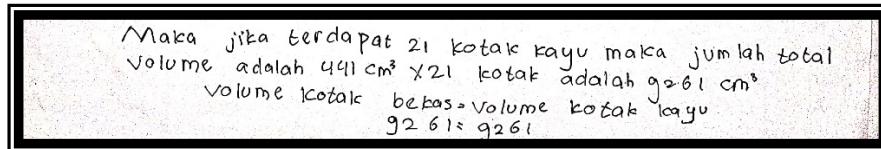 Maka jika terdapat 21 kotak kayu maka jumlah total
volume adalah 441 cm³ x21 kotak adalah 9261 cm³
volume kotak bekas = volume kotak kayu
9261 = 9261